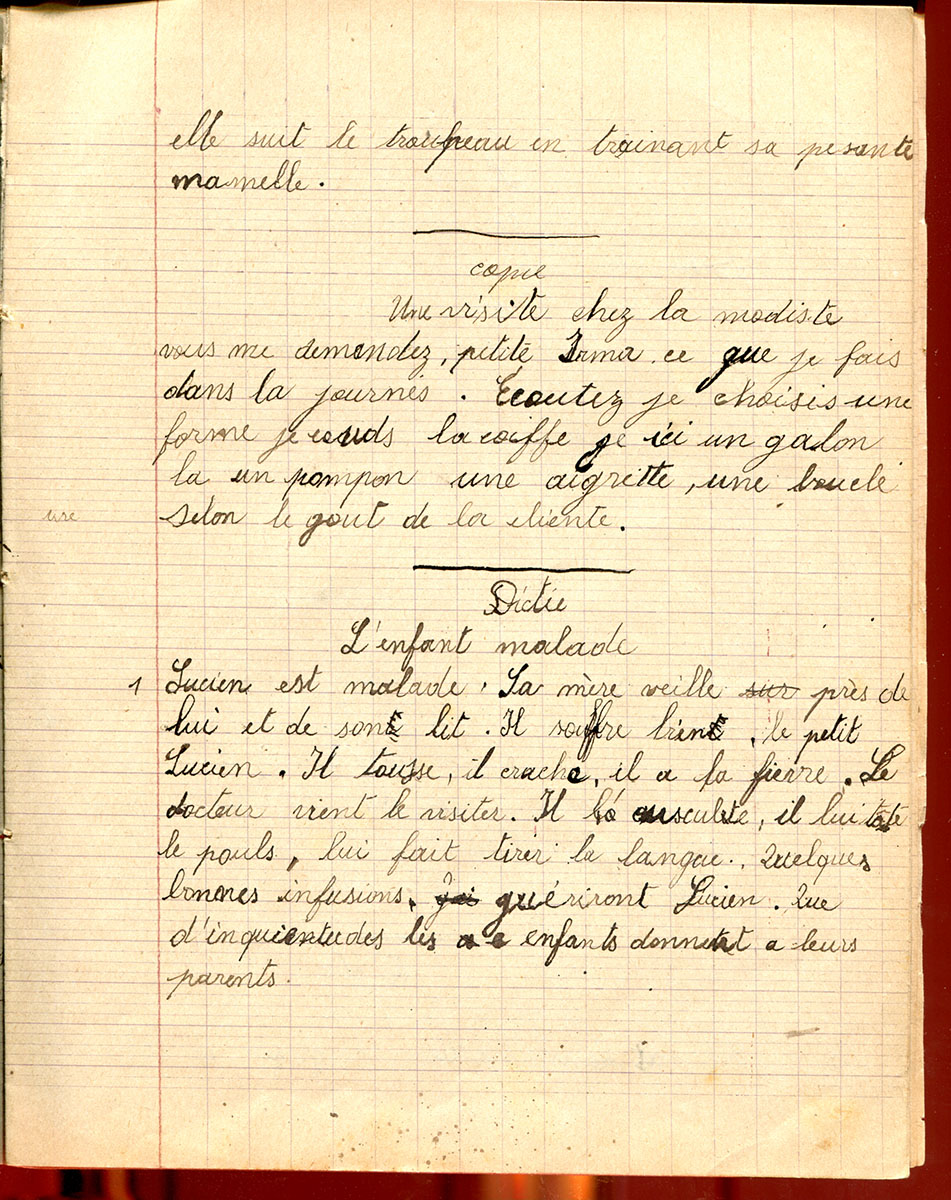 elle suit le troupeau en trainant sa pesante
mamelle.
copie
Une visite chez la modiste
vous me demandez, petite Irma ce que je fais
dans la journés. Ecoutez je choisis une
forme je couds la coiffe je ici un galon
la un pompon une aigrette, une boucle
selon le gout de la cliente.
ure
Dictée
L'enfant malade
1 Lucien est malade. Sa mère veille sur près de
lui et de son lit. Il souffre bien, le petit
Lucien. Il tousse, il crache, il a la fierre. Le
docteur vient le visiter. Il ausculte, il lui tate
le pouls, lui fait tirer la langue. Quelques
bonnes infusions. guériront Lucien. Que
d'inquientudes les enfants donnent a leurs
parents.